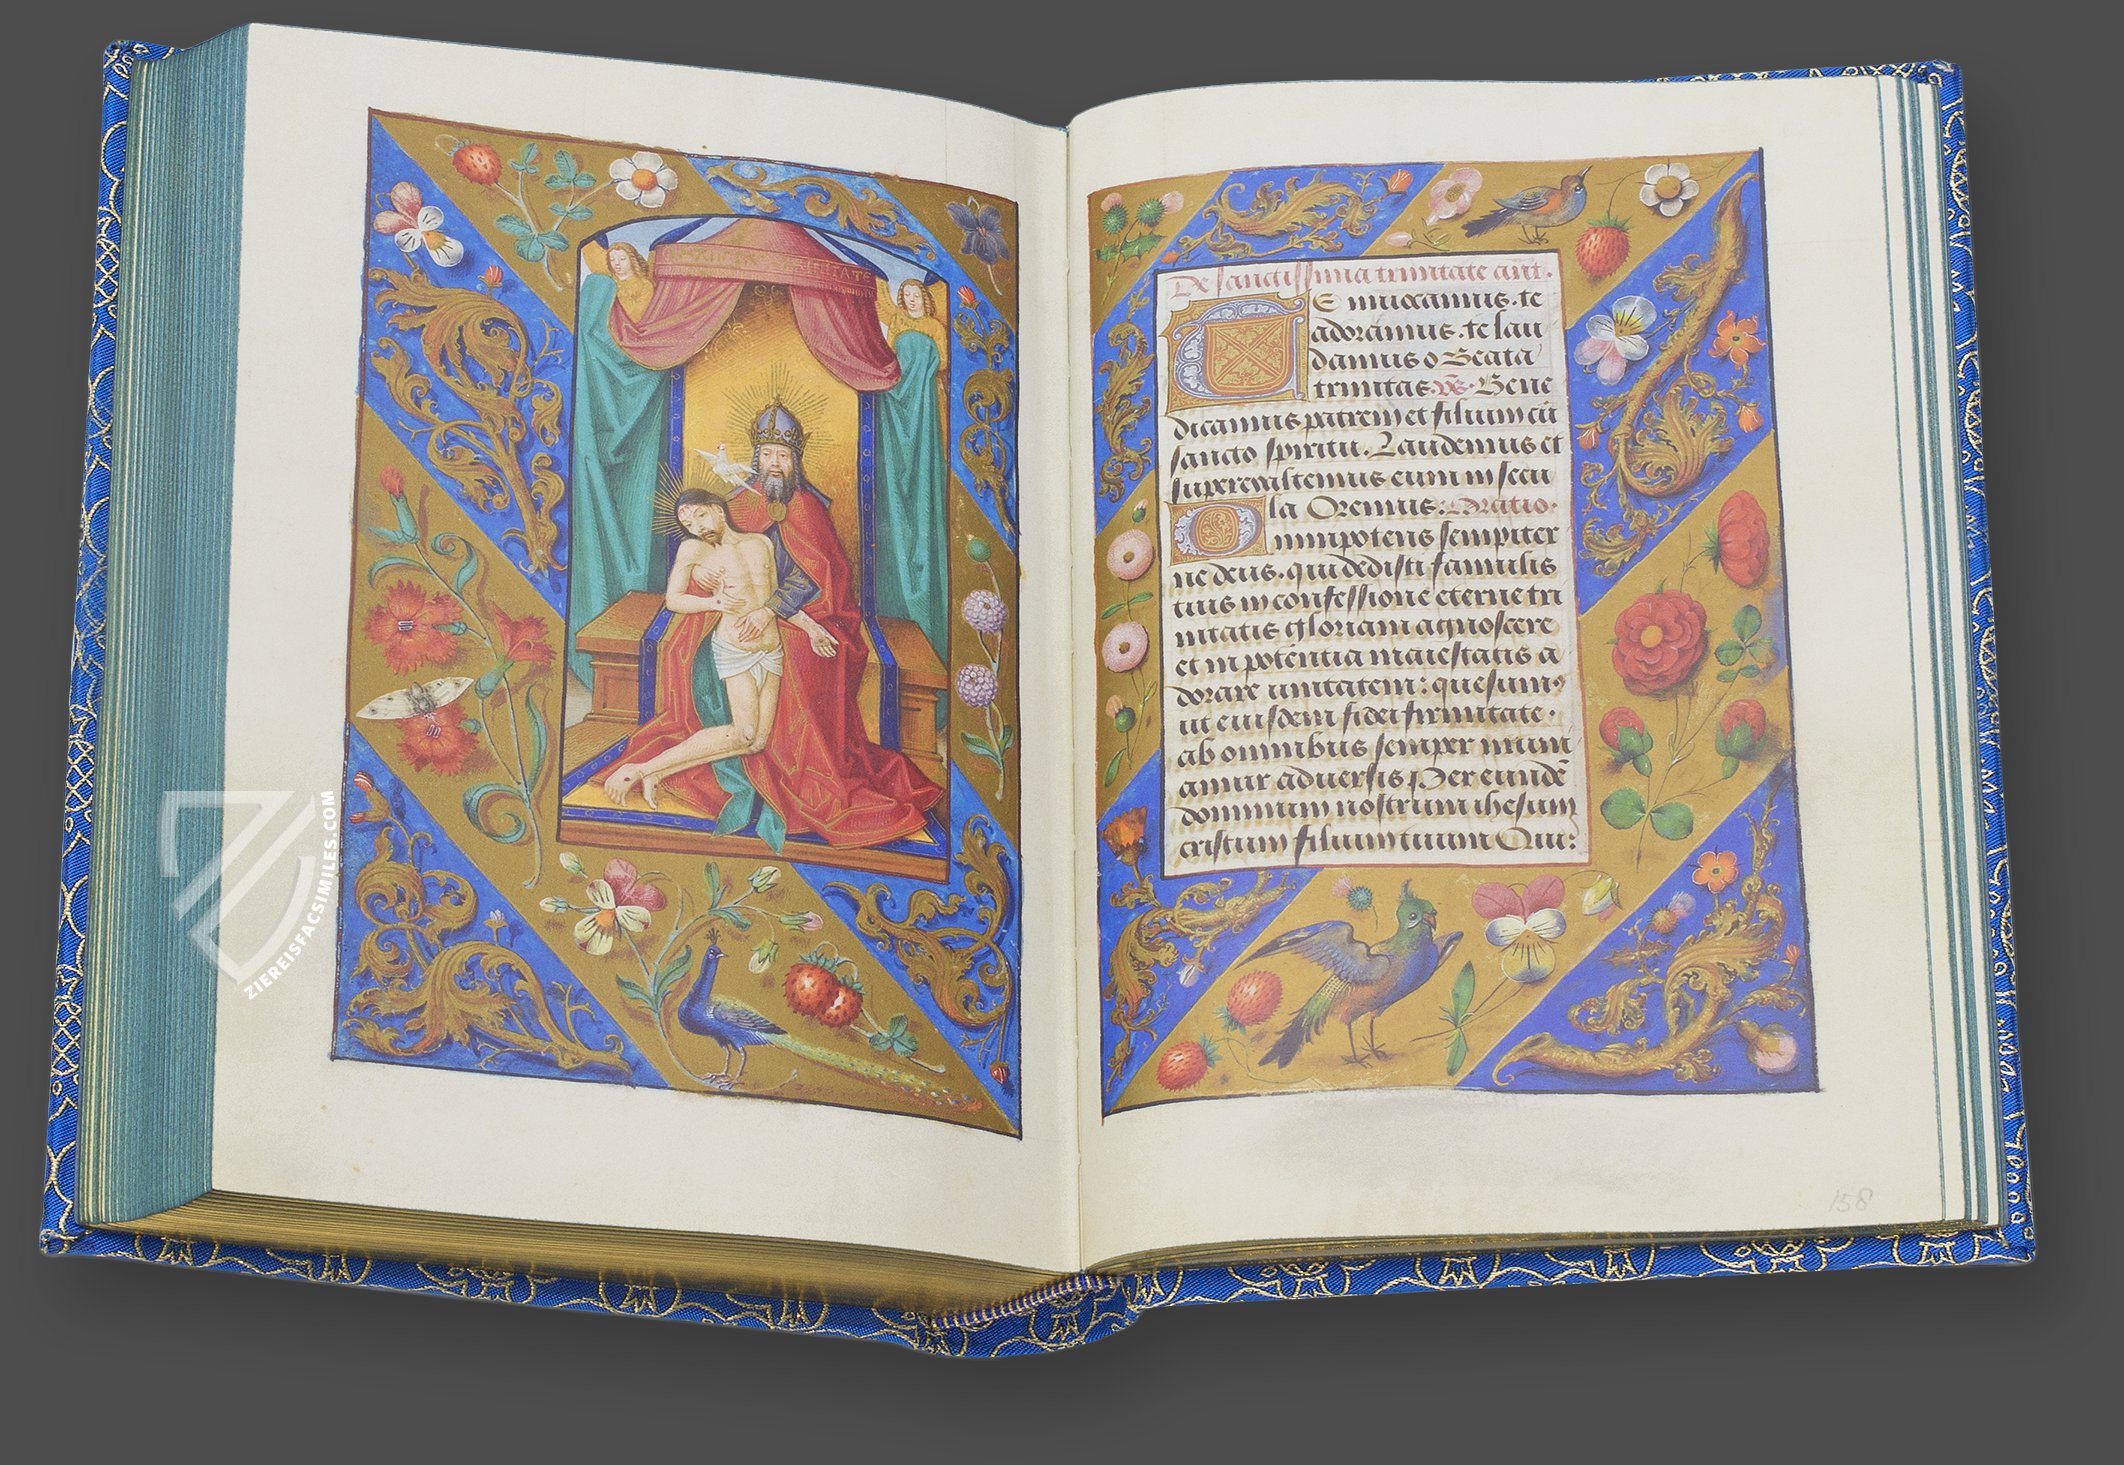 SANCTA TRINITATE
De sanctissima trinitate ant.
TE inuocamus. te
adoramus. te lau
damus o Beata
trinitas. Vs. Bene
dicamus patrem et filium cū
sancto spiritu. Laudemus et
superexaltemus eum in secu
la Oremus: Oratio.
Omnipotens sempiter
ne deus. qui dedisti famulis
tuis in confessione eterne tri
nitatis gloriam agnoscere
et in potentia maiestatis a
dorare unitatem: quesum9
ut eiusdem fidei firmitate.
ab omnibus semper muni
amur aduersis Per eundē
dominum nostrum ihesum
cristum filium tuum Qui:
158
ZIEREISFACSIMILES.COM